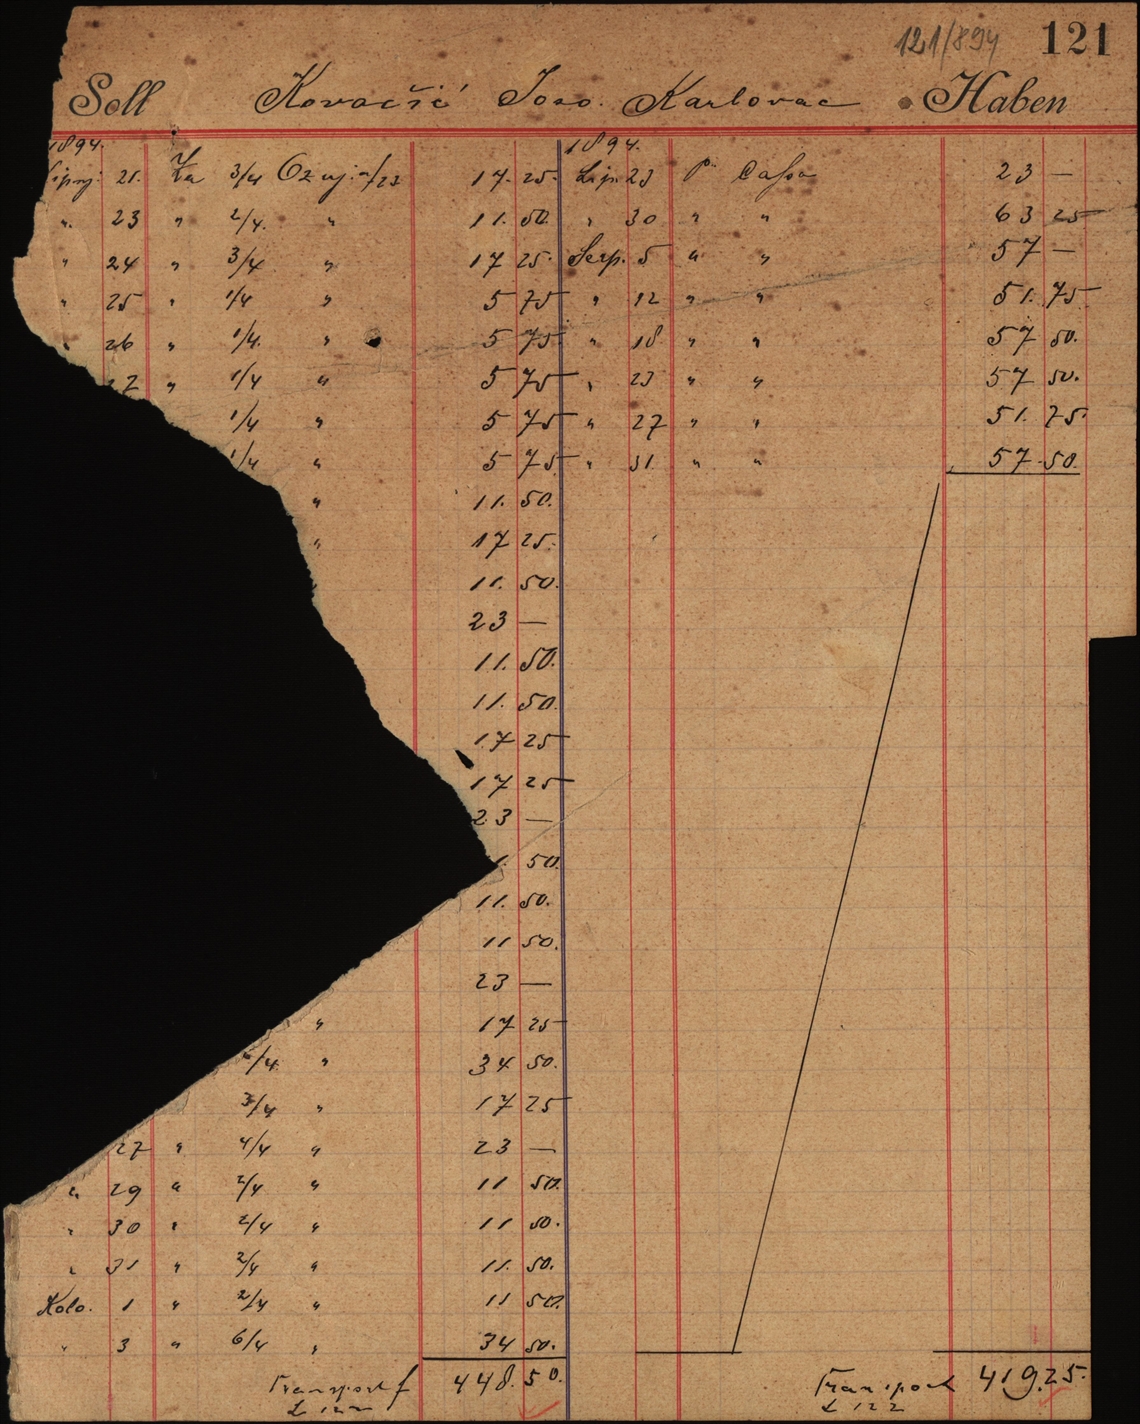 121/894 121
Soll Kovačić Joso. Karlovac Haben
1894. 1894.
21. Za 3/4 17. 25. Lip. 23 p. Cassa 23 —
" 23 " 2/4. " 11. 50. " 30 " " 63 25
" 24 " 3/4 " 17 25. Serp. 5 " " 57 —
" 25 " 1/4 " 5 75 " 12 " " 51. 75
" 26 " 1/4. " 5 75 " 18 " " 57 50.
27 " 1/4 " 5 75 " 23 " " 57 50.
1/4 " 5 75 " 27 " " 51. 75.
1/4 " 5 75 " 31. " " 57. 50.
" 11. 50.
" 17 25.
" 11. 50.
23 —
11. 50.
11. 50.
17 25
17 25
23 —
1. 50.
11. 50.
11 50.
23 —
" 17 25
6/4 " 34 50.
3/4 " 17 25
27 " 4/4 " 23 —
" 29 " 2/4 " 11 50.
" 30 " 2/4 " 11 50.
" 31 " 2/4 " 11. 50.
Kolo. 1 " 2/4 " 11 50.
" 3 " 6/4 " 34 50.
Transport f 448. 50. Transport 419. 25.
L 122 L 122